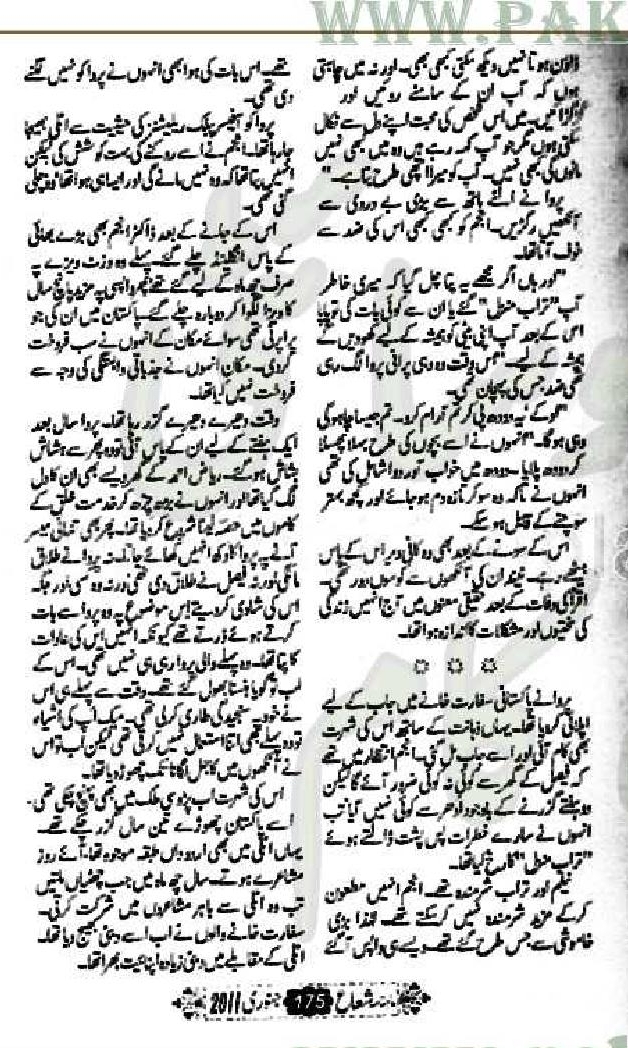 WWW.PAK
ڈاؤن ہوتا نہیں دیکھ سکتی کبھی بھی۔ اور نہ میں چاہتی
ہوں کہ آپ ان کے سامنے روئیں اور
گڑگڑائیں۔ میں اس شخص کی محبت اپنے دل سے نکال
سکتی ہوں مگر جو آپ کہہ رہے ہیں وہ میں کبھی نہیں
مانوں گی کبھی نہیں۔ آپ کو میرا اچھی طرح پتا ہے۔"
پروا نے الٹے ہاتھ سے بڑی بے دردی سے
آنکھیں رگڑیں۔ انجم کو کبھی کبھی اس کی ضد سے
خوف آتا تھا۔
"اور ہاں اگر مجھے یہ پتا چل گیا کہ میری خاطر
آپ "تراب منزل" گئے یا ان سے کوئی بات کی تو پاپا
اس کے بعد آپ اپنی بیٹی کو ہمیشہ کے لیے کھو دیں گے
ہمیشہ کے لیے۔" اس وقت وہ وہی پرانی پروا لگ رہی
تھی ضد جس کی پہچان تھی۔
"اوکے یہ دودھ پی کر تم آرام کرو۔ تم جیسا چاہو گی
وہی ہو گا۔" انہوں نے اسے بچوں کی طرح بہلا پھسلا
کر دودھ پلایا۔ دودھ میں خواب آور دوا شامل کی تھی
انہوں نے تاکہ وہ سو کر تازہ دم ہو جائے اور کچھ بہتر
سوچنے کے قابل ہو سکے۔
اس کے سونے کے بعد بھی وہ کافی دیر اس کے پاس
بیٹھے رہے۔ نیند ان کی آنکھوں سے کوسوں دور تھی۔
اقرا کی وفات کے بعد حقیقی معنوں میں آج انہیں زندگی
کی سختیوں اور مشکلات کا اندازہ ہوا تھا۔
پروا نے پاکستانی سفارت خانے میں جاب کے لیے
اپلائی کر دیا تھا۔ یہاں ذہانت کے ساتھ اس کی شہرت
بھی کام آئی اور اسے جاب مل گئی۔ انجم انتظار میں تھے
کہ فیصل کے گھر سے کوئی نہ کوئی ضرور آئے گا لیکن
دو ہفتے گزرنے کے باوجود ادھر سے کوئی نہیں آیا تب
انہوں نے سارے خطرات پس پشت ڈالتے ہوئے
"تراب منزل" کا رخ کیا تھا۔
نیلم اور تراب شرمندہ تھے۔ انجم انہیں مطعون
کر کے مزید شرمندہ نہیں کر سکتے تھے۔ لہٰذا بڑی
خاموشی سے جس طرح گئے تھے۔ ویسے ہی واپس آ گئے
تھے۔ اس بات کی ہوا بھی انہوں نے پروا کو نہیں لگنے
دی تھی۔
پروا کو ایکسچینج پبلک ریلیشنز کی حیثیت سے اٹلی بھیجا
جا رہا تھا۔ انجم نے اسے روکنے کی بہت کوشش کی لیکن
انہیں پتا تھا کہ وہ نہیں مانے گی اور ایسا ہی ہوا تھا وہ چلی
گئی تھی۔
اس کے جانے کے بعد ڈاکٹر انجم بھی بڑے بھائی
کے پاس انگلینڈ چلے گئے۔ پہلے وہ وزٹ ویزے پہ
صرف چھ ماہ کے لیے گئے تھے پھر واپسی پہ مزید پانچ سال
کا ویزا لگوا کر دوبارہ چلے گئے۔ پاکستان میں ان کی جو
پراپرٹی تھی سوائے مکان کے انہوں نے سب فروخت
کر دی۔ مکان انہوں نے جذباتی وابستگی کی وجہ سے
فروخت نہیں کیا تھا۔
وقت دھیرے دھیرے گزر رہا تھا۔ پروا سال بعد
ایک ہفتے کے لیے ان کے پاس آئی تو وہ پھر سے ہشاش
بشاش ہو گئے۔ ریاض احمد کے گھر ویسے بھی ان کا دل
لگ گیا تھا اور انہوں نے بڑھ چڑھ کر خدمت خلق کے
کاموں میں حصہ لینا شروع کر دیا تھا۔ پھر بھی تنہائی میسر
آتے پہ پروا کا دکھ انہیں کھائے جاتا۔ نہ پروا نے طلاق
مانگی اور نہ فیصل نے طلاق دی تھی ورنہ وہ کسی اور جگہ
اس کی شادی کر دیتے اس موضوع پہ وہ پروا سے بات
کرتے ہوئے ڈرتے تھے کیونکہ انہیں اس کی عادات
کا پتا تھا۔ وہ پہلے والی پروا رہی ہی نہیں تھی۔ اس کے
لب تو گویا ہنسنا بھول گئے تھے۔ وقت سے پہلے ہی اس
نے خود پہ سنجیدگی طاری کر لی تھی۔ میک اپ کی اشیاء
تو وہ پہلے بھی استعمال نہیں کرتی تھی لیکن اب تو اس
نے آنکھوں میں کاجل لگانا تک چھوڑ دیا تھا۔
اس کی شہرت اب پڑوسی ملک میں بھی پہنچ چکی تھی۔
اسے پاکستان چھوڑے تین سال گزر چکے تھے۔
یہاں اٹلی میں بھی اردو داں طبقہ موجود تھا۔ آئے روز
مشاعرے ہوتے۔ سال چھ ماہ میں جب چھٹیاں ملتیں
تب وہ اٹلی سے باہر مشاعروں میں شرکت کرتی۔
سفارت خانے والوں نے اب اسے دبئی بھیج دیا تھا۔
اٹلی کے مقابلے میں دبئی زیادہ اپنائیت بھرا تھا۔
ماہنامہ شعاع 175 جنوری 2011